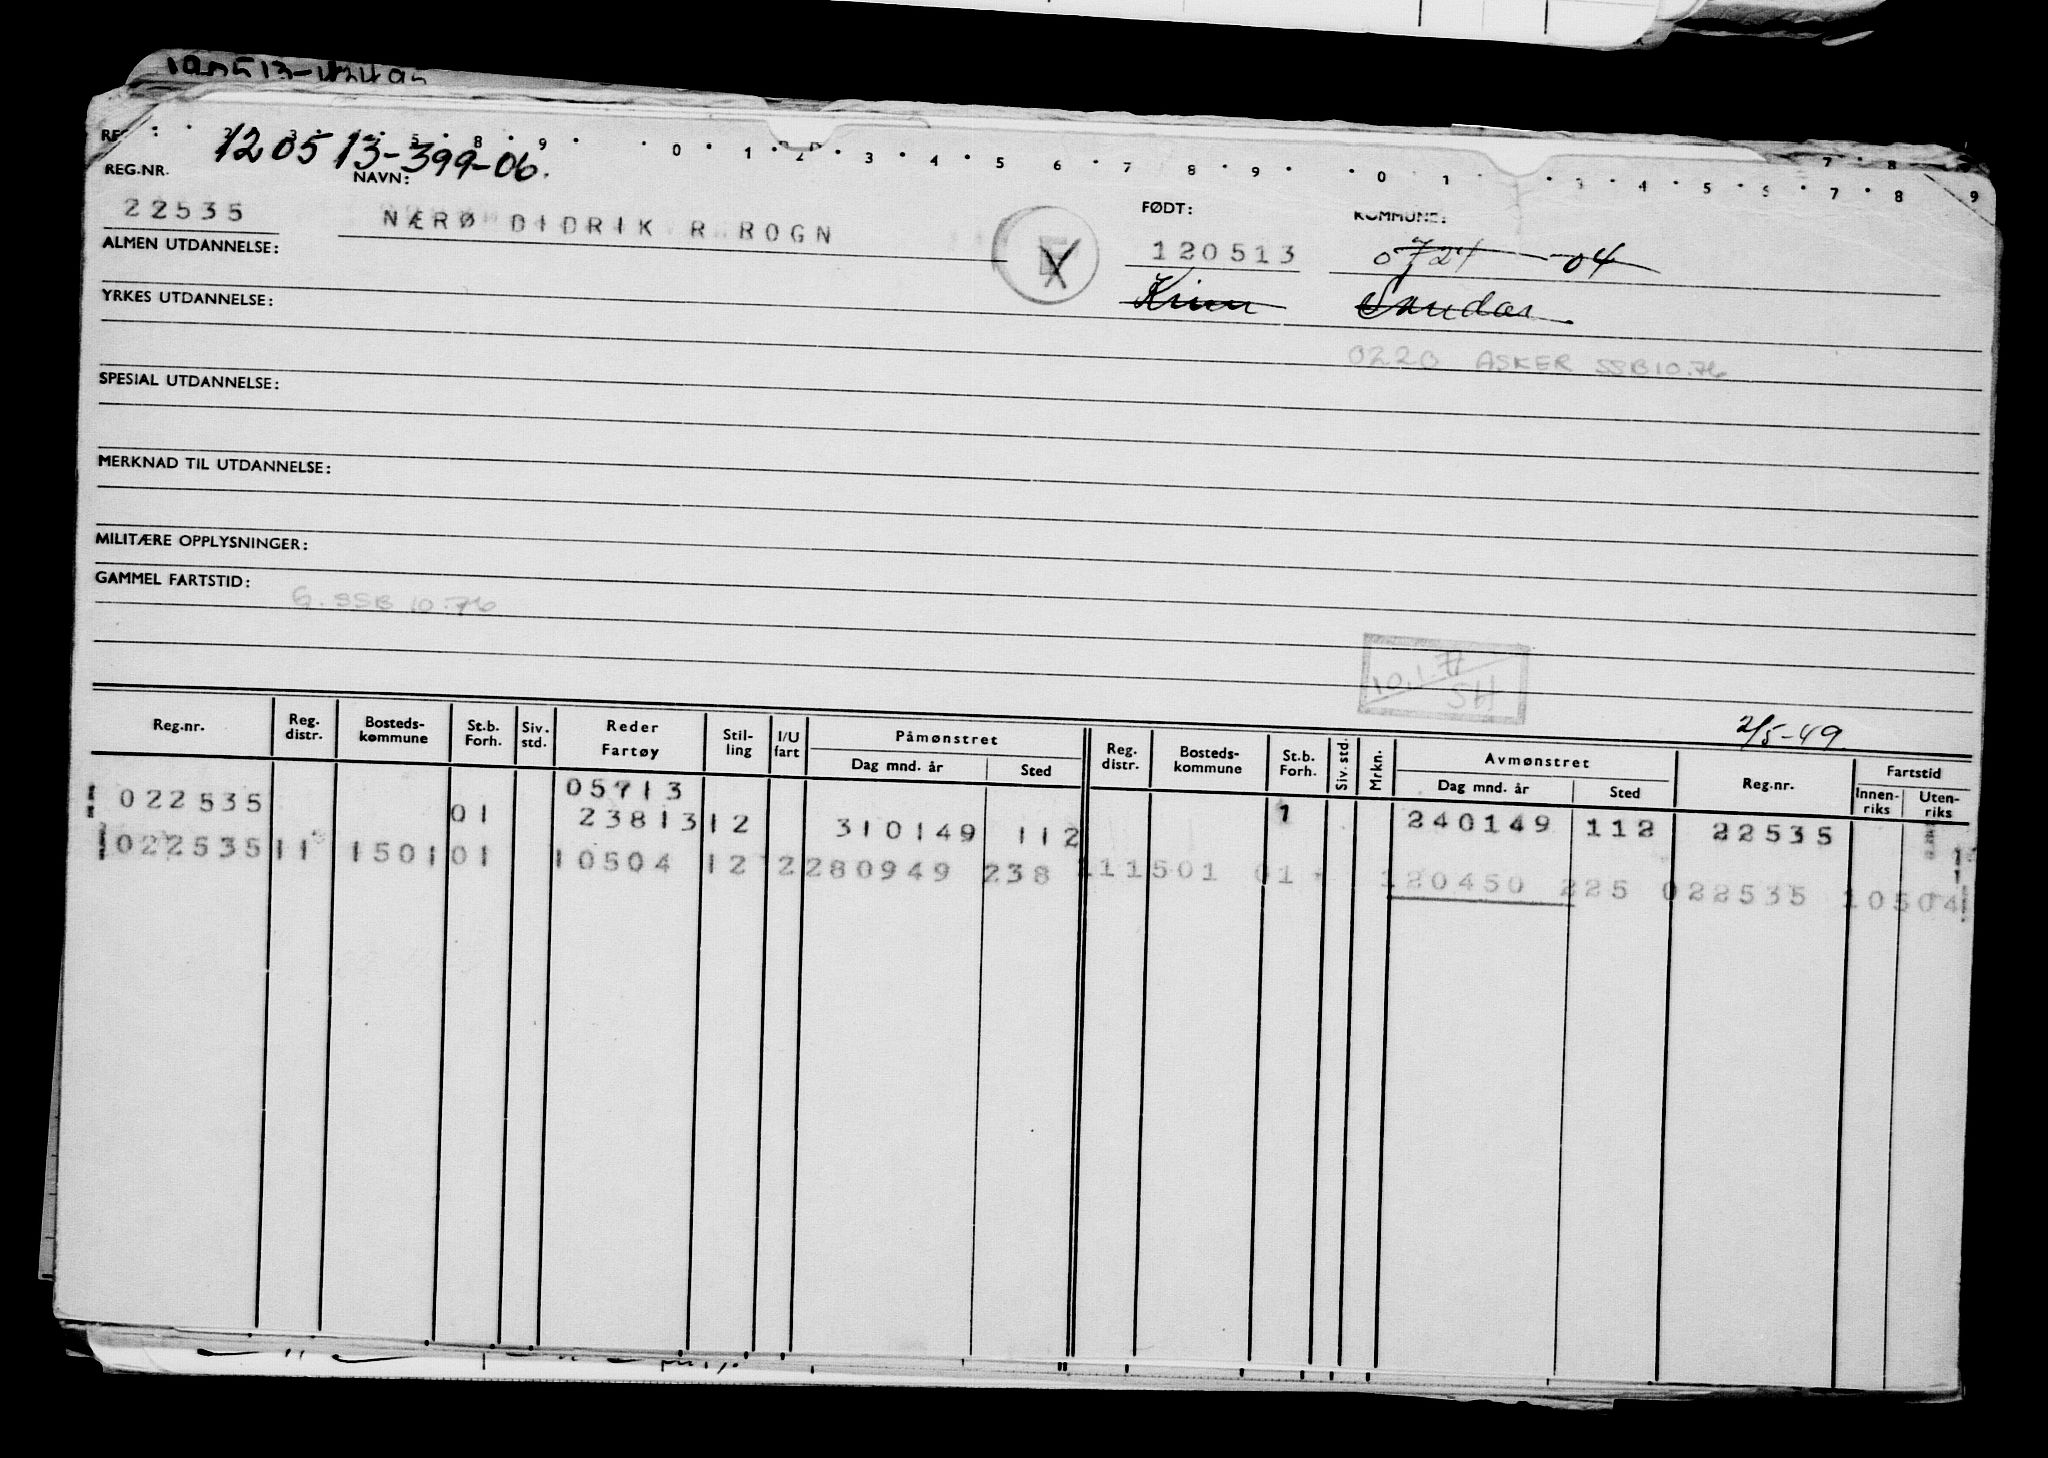 120513-399-06.
REG.NR.
NAVN:
FØDT:
KOMMUNE:
22535
NÆRØ DIDRIK R ROGN
120513
0724 04
ALMEN UTDANNELSE:
Sandar
YRKES UTDANNELSE:
0220 ASKER SSB 10.76
SPESIAL UTDANNELSE:
MERKNAD TIL UTDANNELSE:
MILITÆRE OPPLYSNINGER:
GAMMEL FARTSTID:
G. SSB 10.76
10.1.77
SH
2/5-49.
Reg.nr. Reg. distr. Bosteds-kommune St.b. Forh. Siv. std. Reder Fartøy Stil-ling I/U fart Påmønstret Dag mnd. år Sted Reg. distr. Bosteds-kommune St.b. Forh. Siv. std. Mrkn. Avmønstret Dag mnd. år Sted Reg.nr. Fartstid Innen-riks Uten-riks
05713
022535 01 23813 12 310149 112 1 240149 112 22535
022535 11 1501 01 10504 12 2 280949 238 11 1501 01 120450 225 022535 10504